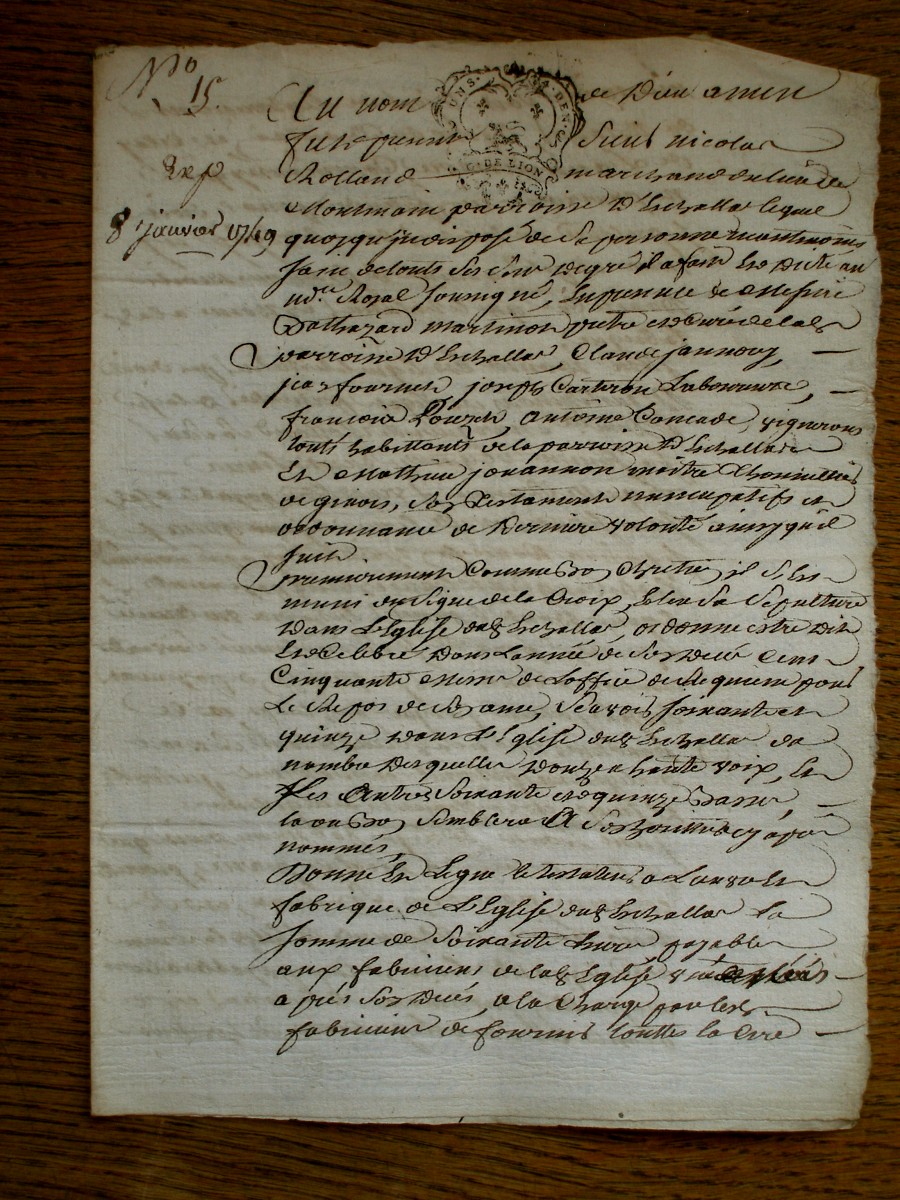 No
15.
Au nom de Dieu amen
fut present Sieur nicolas
Rolland marchand du lieu de
Exp
Montmain parroisse D'Eschallas lequel
8 janvier 1749
quoyqu'indisposé de sa personne neantmoins
sain de touts ses sens de gré il a fait et dicté au
nore Royal soussigné, En presence de Messire
Balthazard martinon pretre et curé de lad
parroisse D'Eschallas, Claude jannouy,
jean fournel joseph Carteron Laboureurs,
françois Pouzet, antoine Cancade, vignerons
touts habittants de la parroisse D'Eschallas
Et Mathieu johannon maitre
de givors, son Testament nuncupatifs et
ordonnance de derniere volonté ainsy qu'il
suit
premierement comme bon Chretien il s'est
muni du signe de la Croix, Eslit sa sepulture
dans L'Eglise dud Eschallas, ordonne estre dit
et celebré dans L'année de son decès Cent
Cinquante Messes de L'office de Requiem pour
Le Repos de son ame, sçavoir soixante et
quinze dans L'Eglise dud Eschallas du
nombre desquelles douze a haute voix, Et
Les autres soixante et quinze
la ou bon semblera A son heritier cy apres
nommés,
Donne Et Legue le testateur a
fabrique de L'Eglise dud Eschallas la
somme de soixante Livres payable
aux fabriciens de lad Eglise
apres son decès, a la charge par lesd
fabriciens de fournir touttes la cire